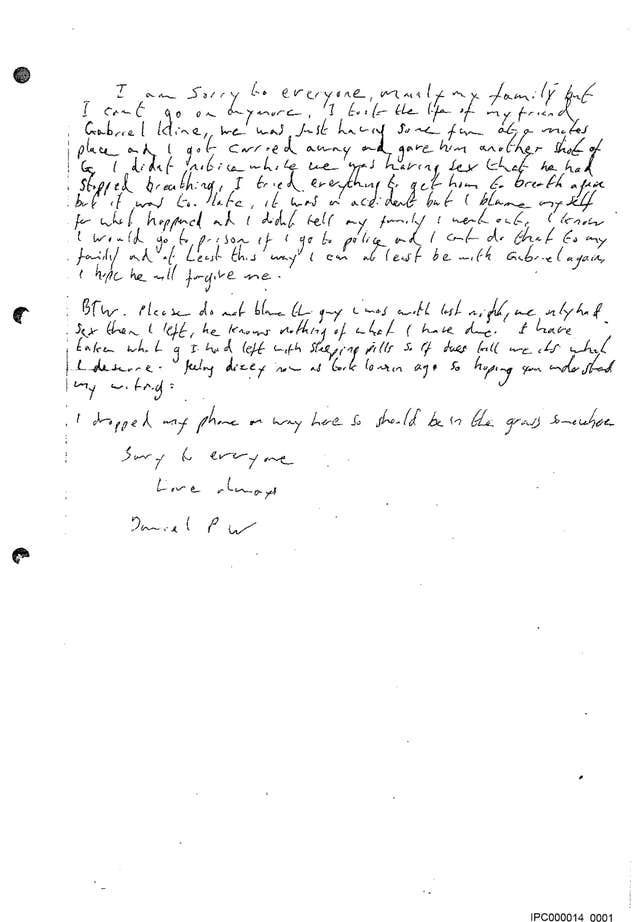 I am Sorry to everyone, mainly my family but
I cant go on anymore, I took the life of my friend
Gabriel Kline, we was just having some fun at a mates
place and I got carried away and gave him another shot of
G, I didnt notice while we was having sex that he had
Stopped breathing, I tried everything to get him to breath again
but it was to late, it was an accident but I blame myself
for what happened and I didnt tell my family I went out, I know
I would go to prison if I go to police and I cant do that to my
family and at Least this way I can at least be with Gabriel again,
I hope he will forgive me.
BTW. Please do not blame the guy I was with last night, we only had
Sex then I left, he knows nothing of what I have done. I have
taken what g I had left with sleeping pills so if it does kill me its what
I deserve. Feeling dizzy now as took 10min ago so hoping you understand
my writing.
I dropped my phone on way here so should be in the grass somewhere
Sorry to everyone
Love always
Daniel P W
IPC000014_0001